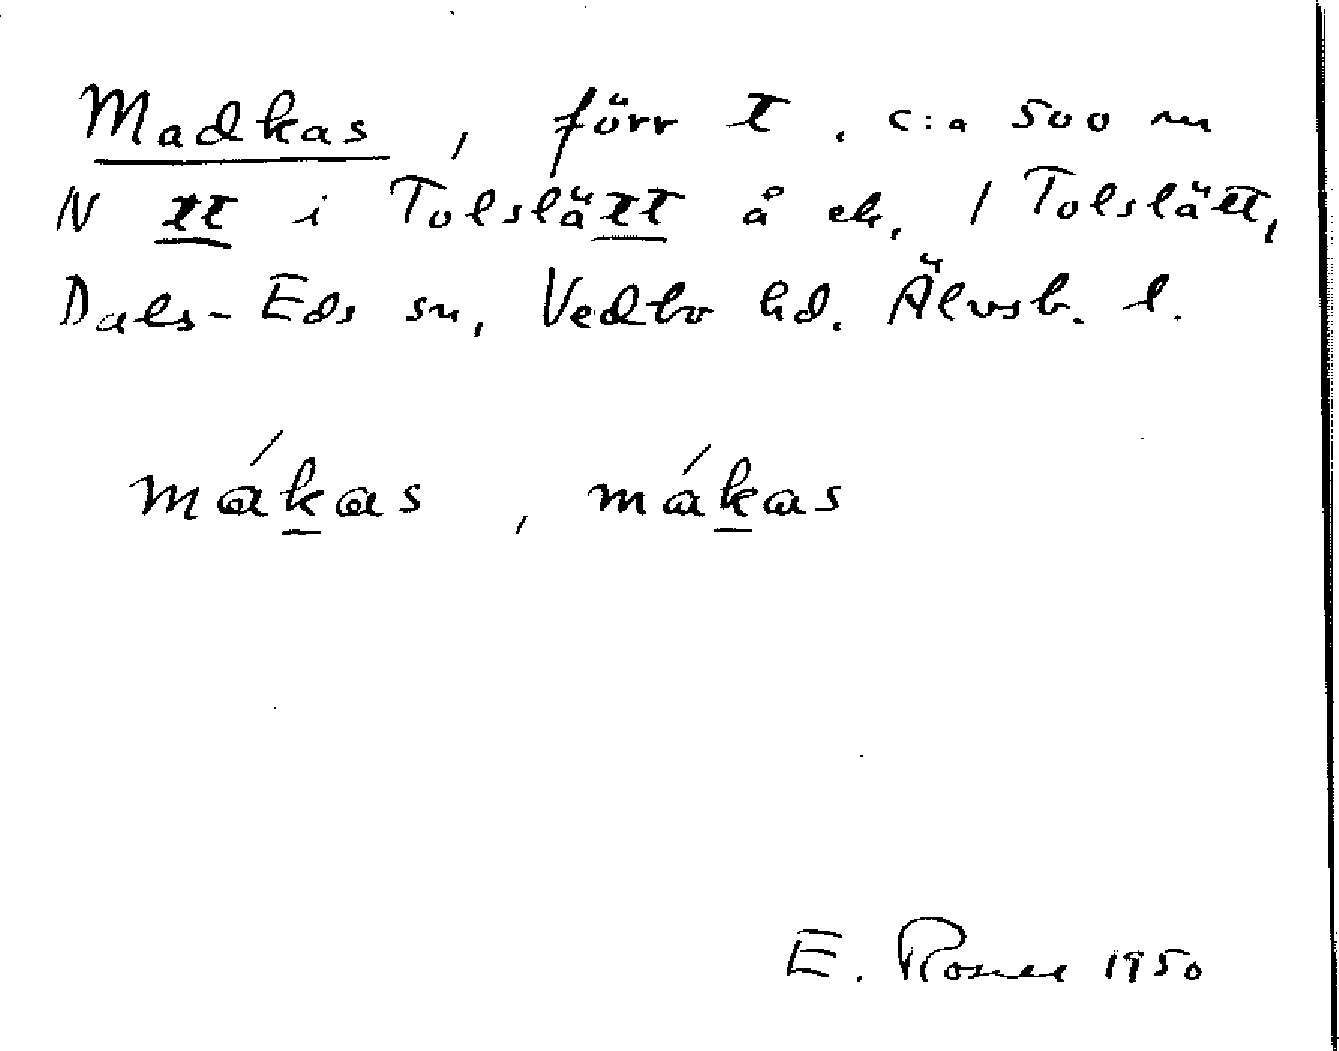 Madkas, förr t. c:a 500 m
N tt i Tolslätt å ek. 1 Tolslätt,
Dals-Eds sn, Vedbo hd. Älvsb. l.
mákas, mákas
E. 1950